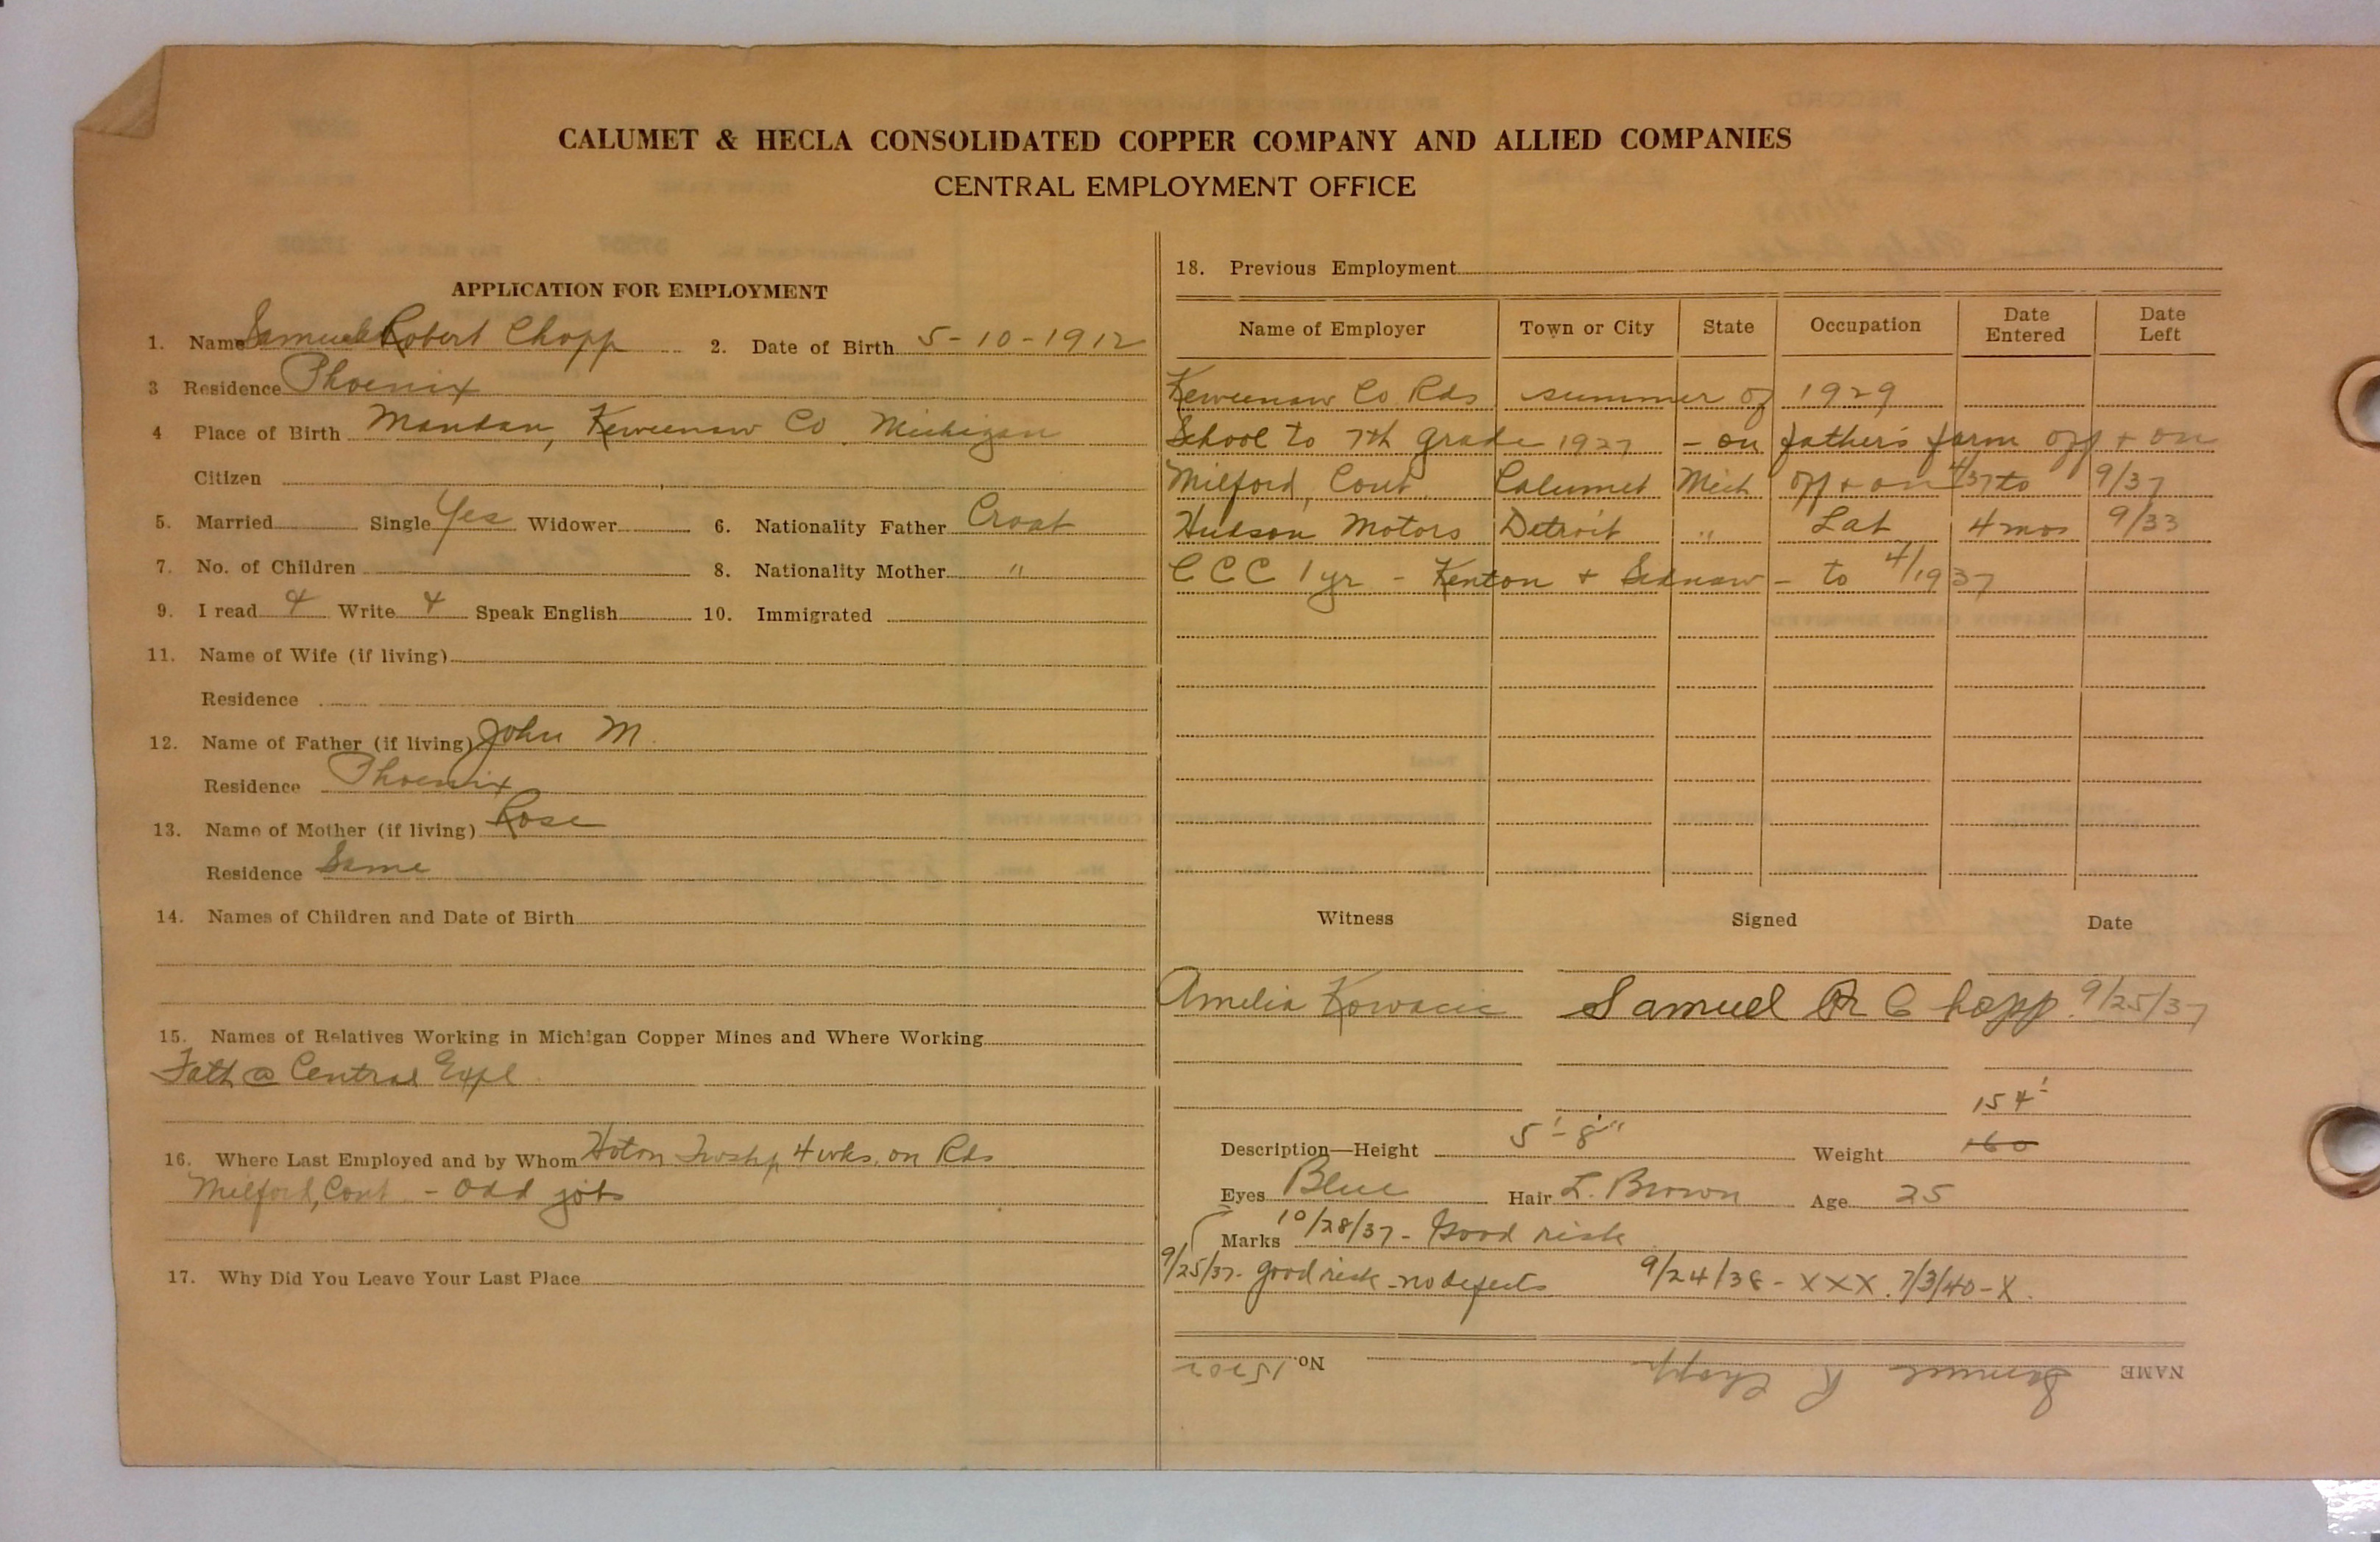 CALUMET & HECLA CONSOLIDATED COPPER COMPANY AND ALLIED COMPANIES
CENTRAL EMPLOYMENT OFFICE
APPLICATION FOR EMPLOYMENT
1. Name Samuel Robert Chopp 2. Date of Birth 5-10-1912
3 Residence Phoenix
4 Place of Birth Mandan, Keweenaw Co. Michigan
Citizen
5. Married Single Yes Widower 6. Nationality Father Croat
7. No. of Children 8. Nationality Mother "
9. I read 4 Write 4 Speak English 10. Immigrated
11. Name of Wife (if living)
Residence
12. Name of Father (if living) John M.
Residence Phoenix
13. Name of Mother (if living) Rose
Residence Same
14. Names of Children and Date of Birth
15. Names of Relatives Working in Michigan Copper Mines and Where Working
Fath @ Central Expl
16. Where Last Employed and by Whom Hoton Twshp 4 wks. on Rds
Milford, Cont - odd jobs
17. Why Did You Leave Your Last Place
18. Previous Employment
Name of Employer Town or City State Occupation Date Entered Date Left
Keweenaw Co Rds summer of 1929
School to 7th grade 1927 - on father's farm off + on
Milford, Cont. Calumet Mich off + on 4/37 to 9/37
Hudson Motors Detroit " Lab 4 mos 9/33
C C C 1 yr - Kenton + Sidnaw - to 4/1937
Witness Signed Date
Amelia Kowacic Samuel R Chopp. 9/25/37
154
Description—Height 5'-8" Weight 160
Eyes Blue Hair L. Brown Age 25
Marks 10/28/37 - Good risk
9/25/37 - good risk - no defects 9/24/38 - XXX. 7/3/40 - X.
NAME Samuel R Chopp No. 15202